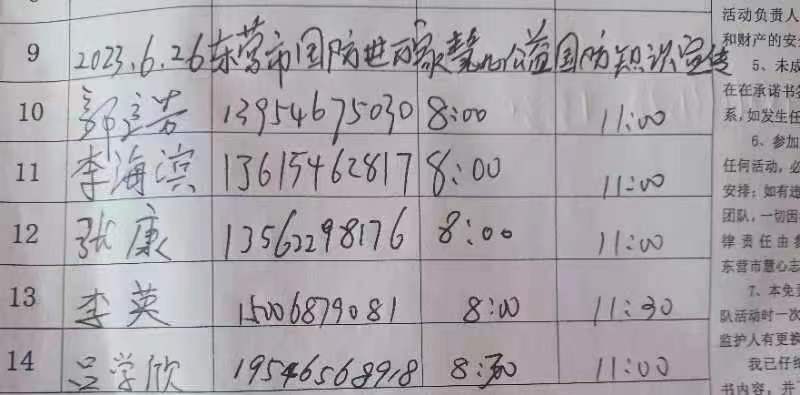 9 2023.6.26东营市国防进万家慧心公益国防知识宣传
10 郭立芳 13954675030 8:00 11:00
11 李海滨 13615462817 8:00 11:00
12 张康 13562298176 8:00 11:00
13 李英 15006879081 8:00 11:30
14 吕学欣 19546568918 8:30 11:00
活动负责人
和财产的安
5、未成
在在承诺书
系,如发生任
6、参加
任何活动,必
安排;如有违
团队,一切因
律责任由参
东营市慧心志
7、本免
队活动时一次
监护人有更换
我已仔细
书内容,并